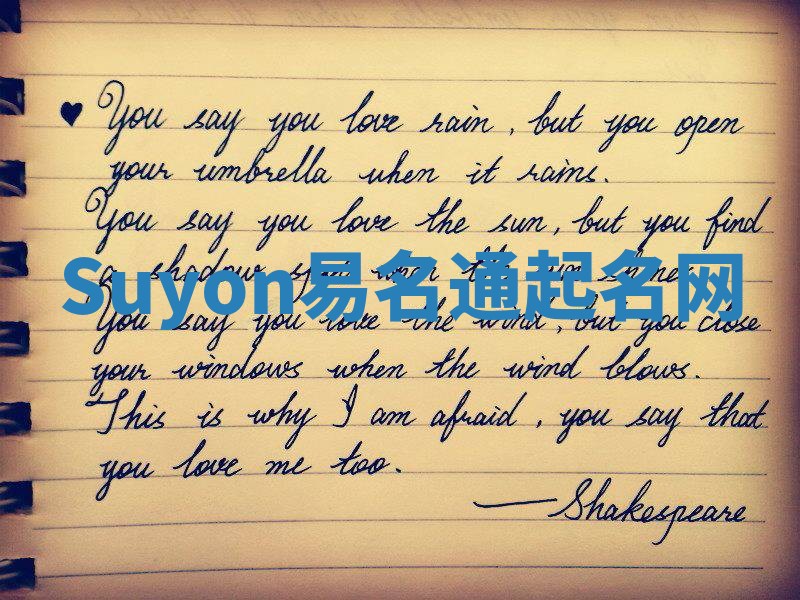 ♥ You say you love rain, but you open
your umbrella when it rains.
You say you love the sun, but you find
a shadow spot when the sun shines.
Suyon易名通起名网
You say you love the wind, but you close
your windows when the wind blows.
This is why I am afraid, you say that
you love me too.
—Shakespeare